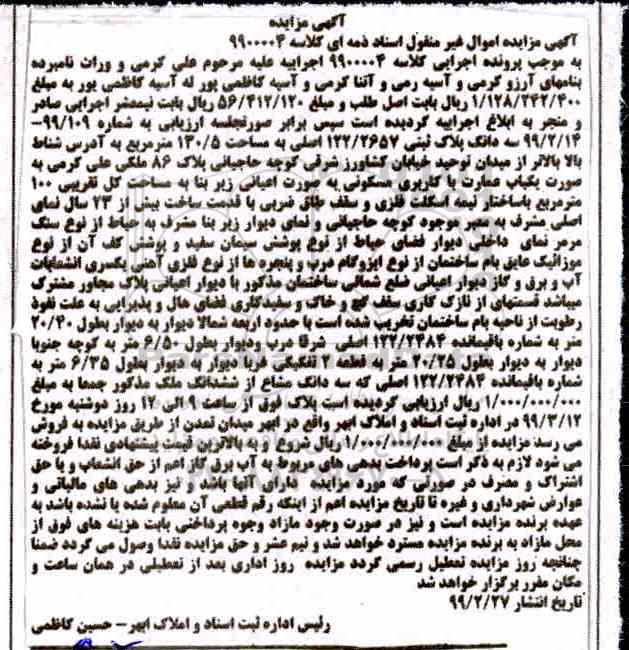 آگهی مزایده
آگهی مزایده اموال غیر منقول اسناد ذمه ای کلاسه ۹۹۰۰۰۰۴
به موجب پرونده اجرایی کلاسه ۹۹۰۰۰۰۴ اجراییه علیه مرحوم علی کرمی و وراث نامبرده
بنامهای آرزو کرمی و آسیه رمی و آتنا کرمی و آسیه کاظمی پور له آسیه کاظمی پور به مبلغ
۱/۱۲۸/۲۴۲/۴۰۰ ریال بابت اصل طلب و مبلغ ۵۶/۴۱۲/۱۲۰ ریال بابت نیمعشر اجرایی صادر
و منجر به ابلاغ اجراییه گردیده است سپس برابر صورتجلسه ارزیابی به شماره ۹۹/۱۰۹-
۹۹/۲/۱۴ سه دانک پلاک ثبتی ۱۲۲/۲۶۵۷ اصلی به مساحت ۱۳۰/۵ مترمربع به آدرس شناط
بالا بالاتر از میدان توحید خیابان کشاورز شرقی کوچه حاجیانی پلاک ۸۶ ملکی علی کرمی به
صورت یکباب عمارت با کاربری مسکونی به صورت اعیانی زیر بنا به مساحت کل تقریبی ۱۰۰
مترمربع باساختار نیمه اسکلت فلزی و سقف طاق ضربی با قدمت ساخت بیش از ۲۳ سال نمای
اصلی مشرف به معبر موجود کوچه حاجیانی و نمای دیوار زیر بنا مشرف به حیاط از نوع سنگ
مرمر نمای داخلی دیوار فضای حیاط از نوع پوشش سیمان سفید و پوشش کف آن از نوع
موزائیک عایق بام ساختمان از نوع ایزوگام درب و پنجره ها از نوع فلزی آهنی یکسری انشعابات
آب و برق و گاز دیوار اعیانی ضلع شمالی ساختمان مذکور با دیوار اعیانی پلاک مجاور مشترک
میباشد قسمتهای از نازک کاری سقف گچ و خاک و سفیدکاری فضای هال و پذیرایی به علت نفوذ
رطوبت از ناحیه بام ساختمان تخریب شده است با حدود اربعه شمالا دیوار به دیوار بطول ۲۰/۴۰
متر به شماره باقیمانده ۱۲۲/۲۴۸۴ اصلی شرقا درب ودیوار بطول ۶/۵۰ متر به کوچه جنوبا
دیوار به دیوار بطول ۲۰/۲۵ متر به قطعه ۲ تفکیکی غربا دیوار به دیوار بطول ۶/۳۵ متر به
شماره باقیمانده ۱۲۲/۲۴۸۴ اصلی که سه دانک مشاع از ششدانک ملک مذکور جمعا به مبلغ
۱/۰۰۰/۰۰۰/۰۰۰ ریال ارزیابی گردیده است پلاک فوق از ساعت ۹ الی ۱۲ روز دوشنبه مورخ
۹۹/۳/۱۲ در اداره ثبت اسناد و املاک ابهر واقع در ابهر میدان تمدن از طریق مزایده به فروش
می رسد مزایده از مبلغ ۱/۰۰۰/۰۰۰/۰۰۰ ریال شروع و به بالاترین قیمت پیشنهادی نقدا فروخته
می شود لازم به ذکر است پرداخت بدهی های مربوط به آب برق گاز اعم از حق انشعاب و یا حق
اشتراک و مصرف در صورتی که مورد مزایده دارای آنها باشد و نیز بدهی های مالیاتی و
عوارض شهرداری و غیره تا تاریخ مزایده اعم از اینکه رقم قطعی آن معلوم شده یا نشده باشد به
عهده برنده مزایده است و نیز در صورت وجود مازاد وجوه پرداختی بابت هزینه های فوق از
محل مازاد به برنده مزایده مسترد خواهد شد و نیم عشر و حق مزایده نقدا وصول می گردد ضمنا
چنانچه روز مزایده تعطیل رسمی گردد مزایده روز اداری بعد از تعطیلی در همان ساعت و
مکان مقرر برگزار خواهد شد
تاریخ انتشار ۹۹/۲/۲۷
رئیس اداره ثبت اسناد و املاک ابهر- حسین کاظمی